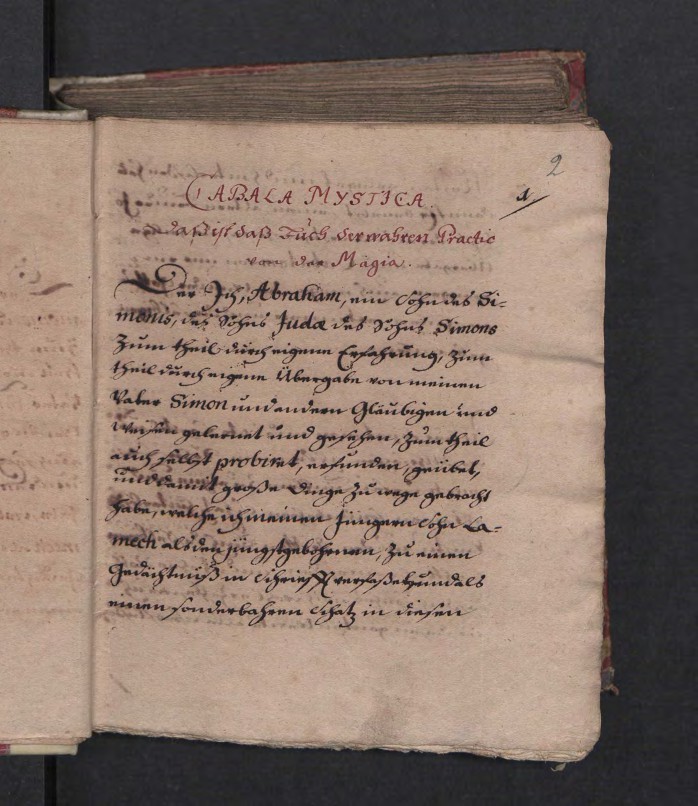 2
1
CABALA MYSTICA.
daß ist daß Buch der wahren Practic
von der Magia.
Der Ich, Abraham, ein Sohn des Si-
monis, des Sohns Juda des Sohns Simons
Zum theil durch eigene Erfahrung, Zum
theil durch eigene Übergabe von meinen
Vater Simon und andern Gläubigen und
Weisen gelernet und gesehen, Zum theil
auch selbst probiret, erfunden, geübet,
und damit große Dinge zu wege gebracht
habe, welche ich meinen Jüngern Sohn La-
mech als den jüngstgebohrnen, Zu einen
Gedächtnuß in Schrifft verfaßet, und als
einen sonderbahren Schatz in diesen